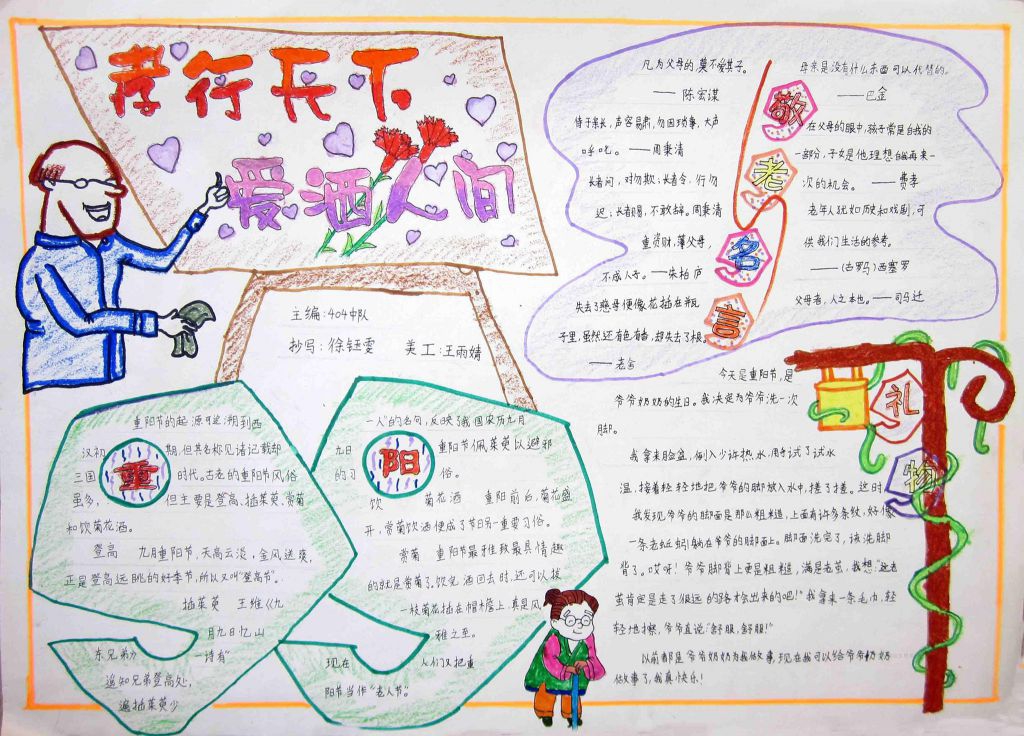 孝行天下
爱洒人间
主编:404中队
抄写:徐钰雯 美工:王雨婧
敬老名言
凡为父母的莫不爱其子。
——陈宏谋
侍于亲长,声容易肃,勿因琐事,大声
呼叱。——周秉清
长者问,对勿欺;长者令,行勿
迟;长者赐,不敢辞。周秉清
重资财,薄父母,
不成人子。——朱柏庐
失去了慈母便像花插在瓶
子里,虽然还有色有香,却失去了根。
——老舍
母亲是没有什么东西可以代替的。
——巴金
在父母的眼中,孩子常是自我的
一部分,子女是他理想自我再来一
次的机会。——费孝
老年人犹如历史和戏剧,可
供我们生活的参考。
——(古罗马)西塞罗
父母者,人之本也。——司马迁
重
重阳节的起源可追溯到西
汉初期,但其名称见诸记载却
三国时代。古老的重阳节风俗
虽多,但主要是登高、插茱萸、赏菊
和饮菊花酒。
登高 九月重阳节,天高云淡,金风送爽,
正是登高远眺的好季节,所以又叫“登高节”。
插茱萸 王维《九
月九日忆山
东兄弟》一诗有“
遥知兄弟登高处,
遍插茱萸少
阳
一人”的名句,反映了我国农历九月
九日重阳节佩茱萸以避邪
的习俗。
饮菊花酒 重阳前后,菊花盛
开,赏菊饮酒便成了节日另一重要习俗。
赏菊 重阳节最才雅致最具情趣
的就是赏菊了。饮完酒回去时,还可以拔
一枝菊花插在帽檐上,真是风
雅之至。
现在人们又把重
阳节当作“老人节”。
礼物
今天是重阳节,是
爷爷奶奶的生日。我决定为爷爷洗一次
脚。
我拿来脸盆,倒入少许热水,用手试了试水
温,接着轻轻地把爷爷的脚放入水中,搓了搓。这时
我发现爷爷的脚面是那么粗糙,上面有许多条纹,好像
一条老蚯蚓躺在爷爷的脚面上。脚面洗完了,该洗脚
背了。哎呀!爷爷脚背上更是粗糙,满是老茧,我想:“这老
茧肯定是走了很远的路才会出来的吧!”我拿来一条毛巾,轻
轻地擦,爷爷直说“舒服,舒服!”
以前都是爷爷奶奶为我做事,现在我可以给爷爷奶奶
做事了,我真快乐!